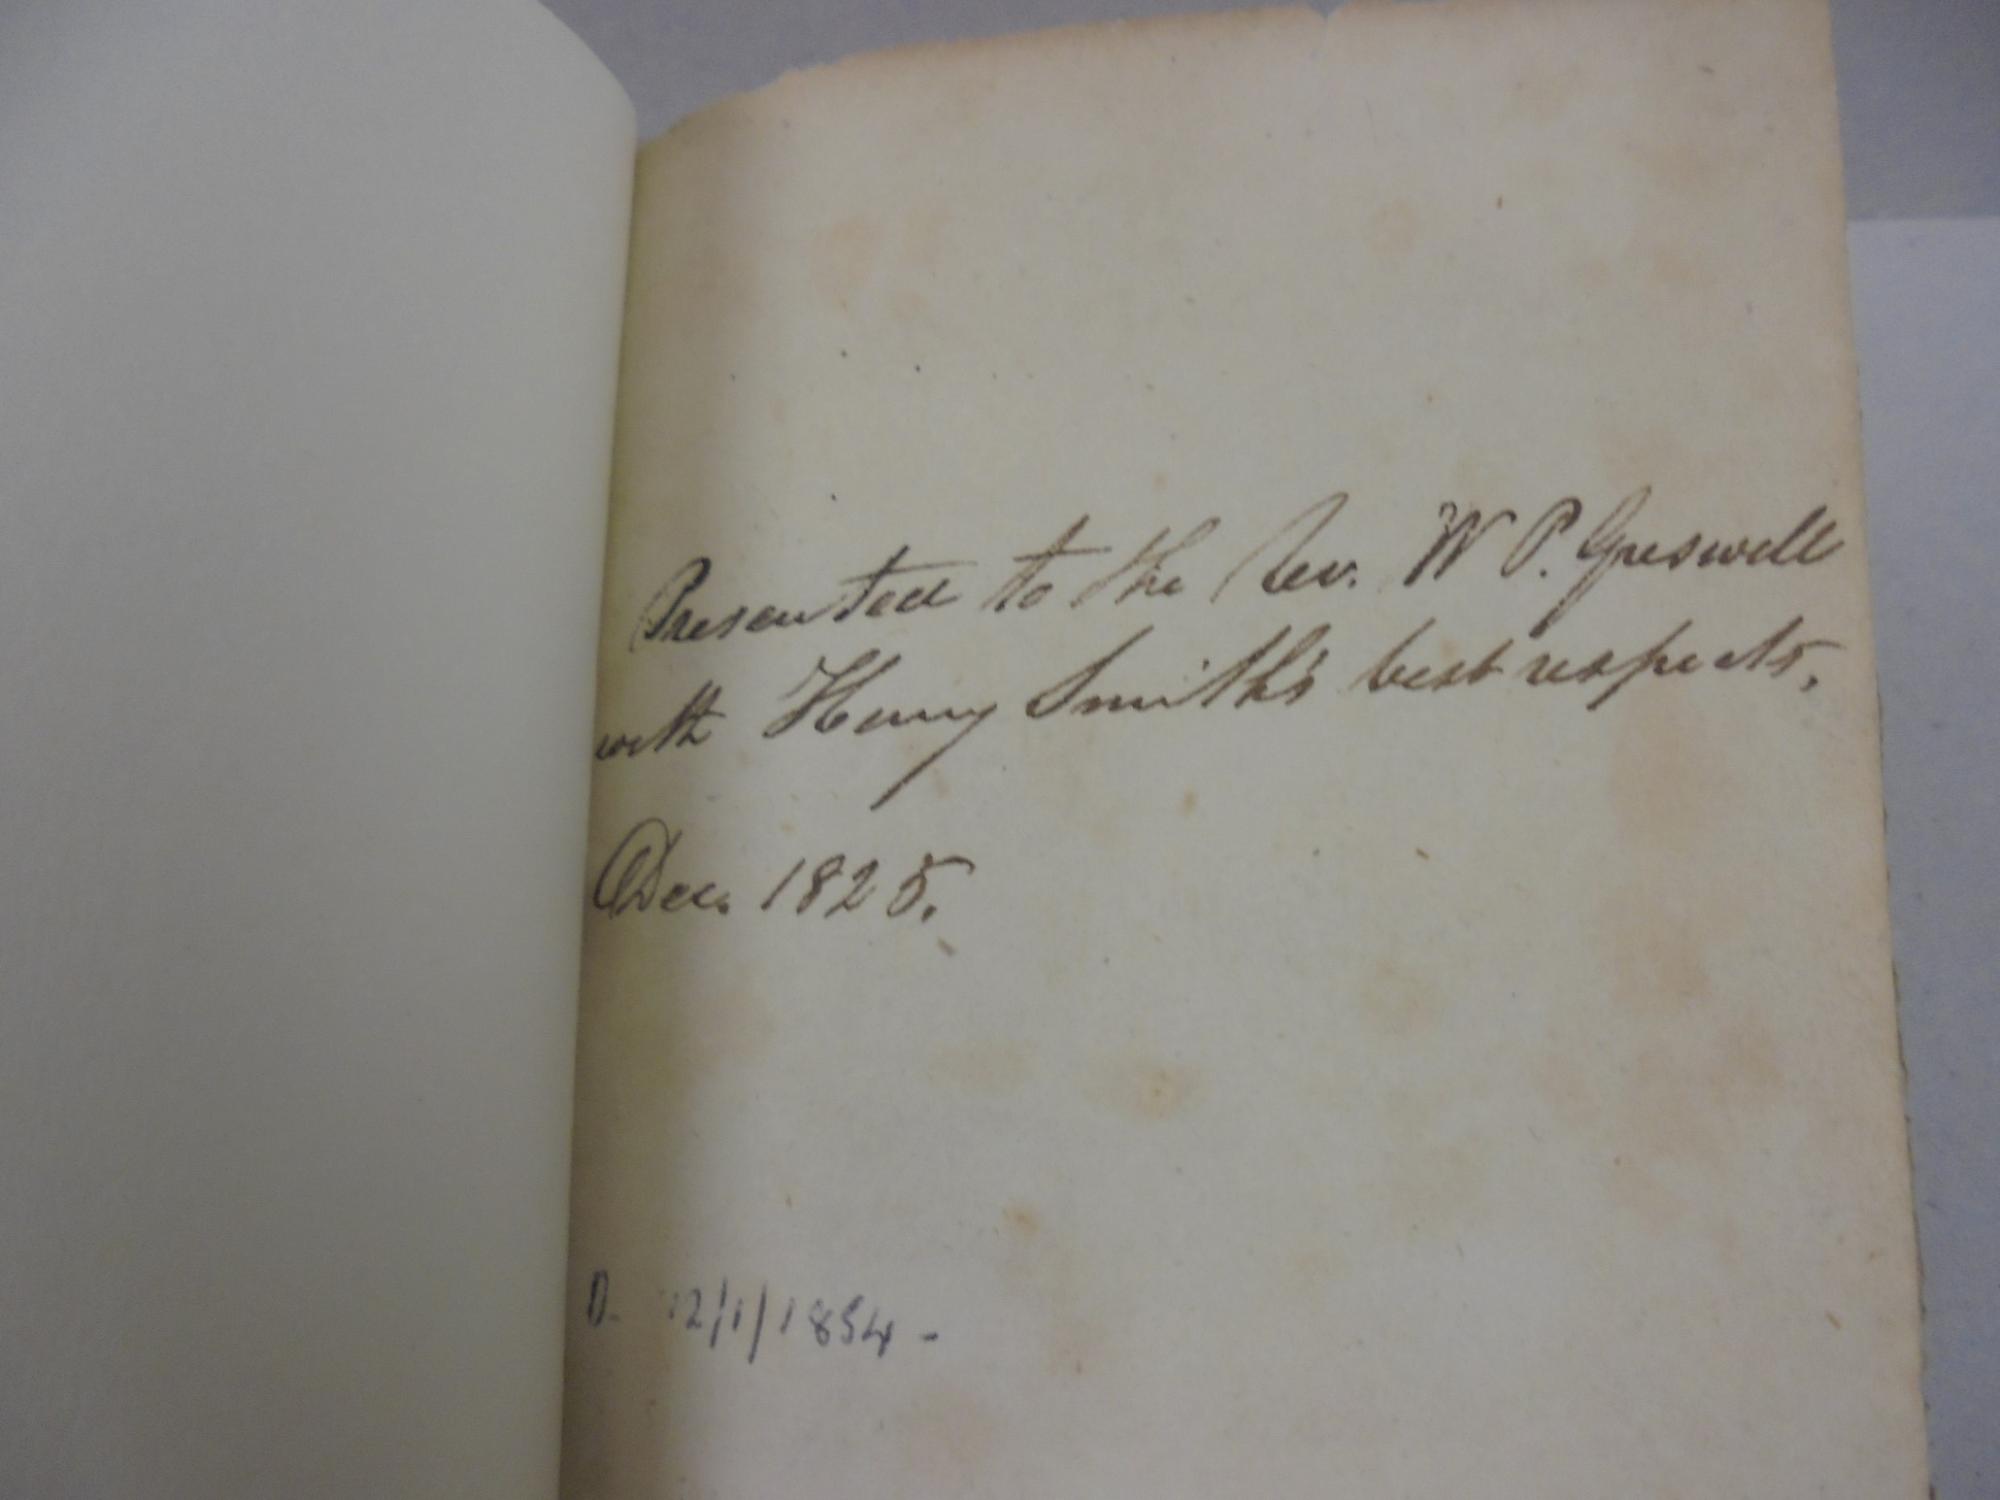 Presented to the Rev. W P. Greswell
with Henry Smith's best respects,
Dec. 1825.
D. 12/1/1854 -